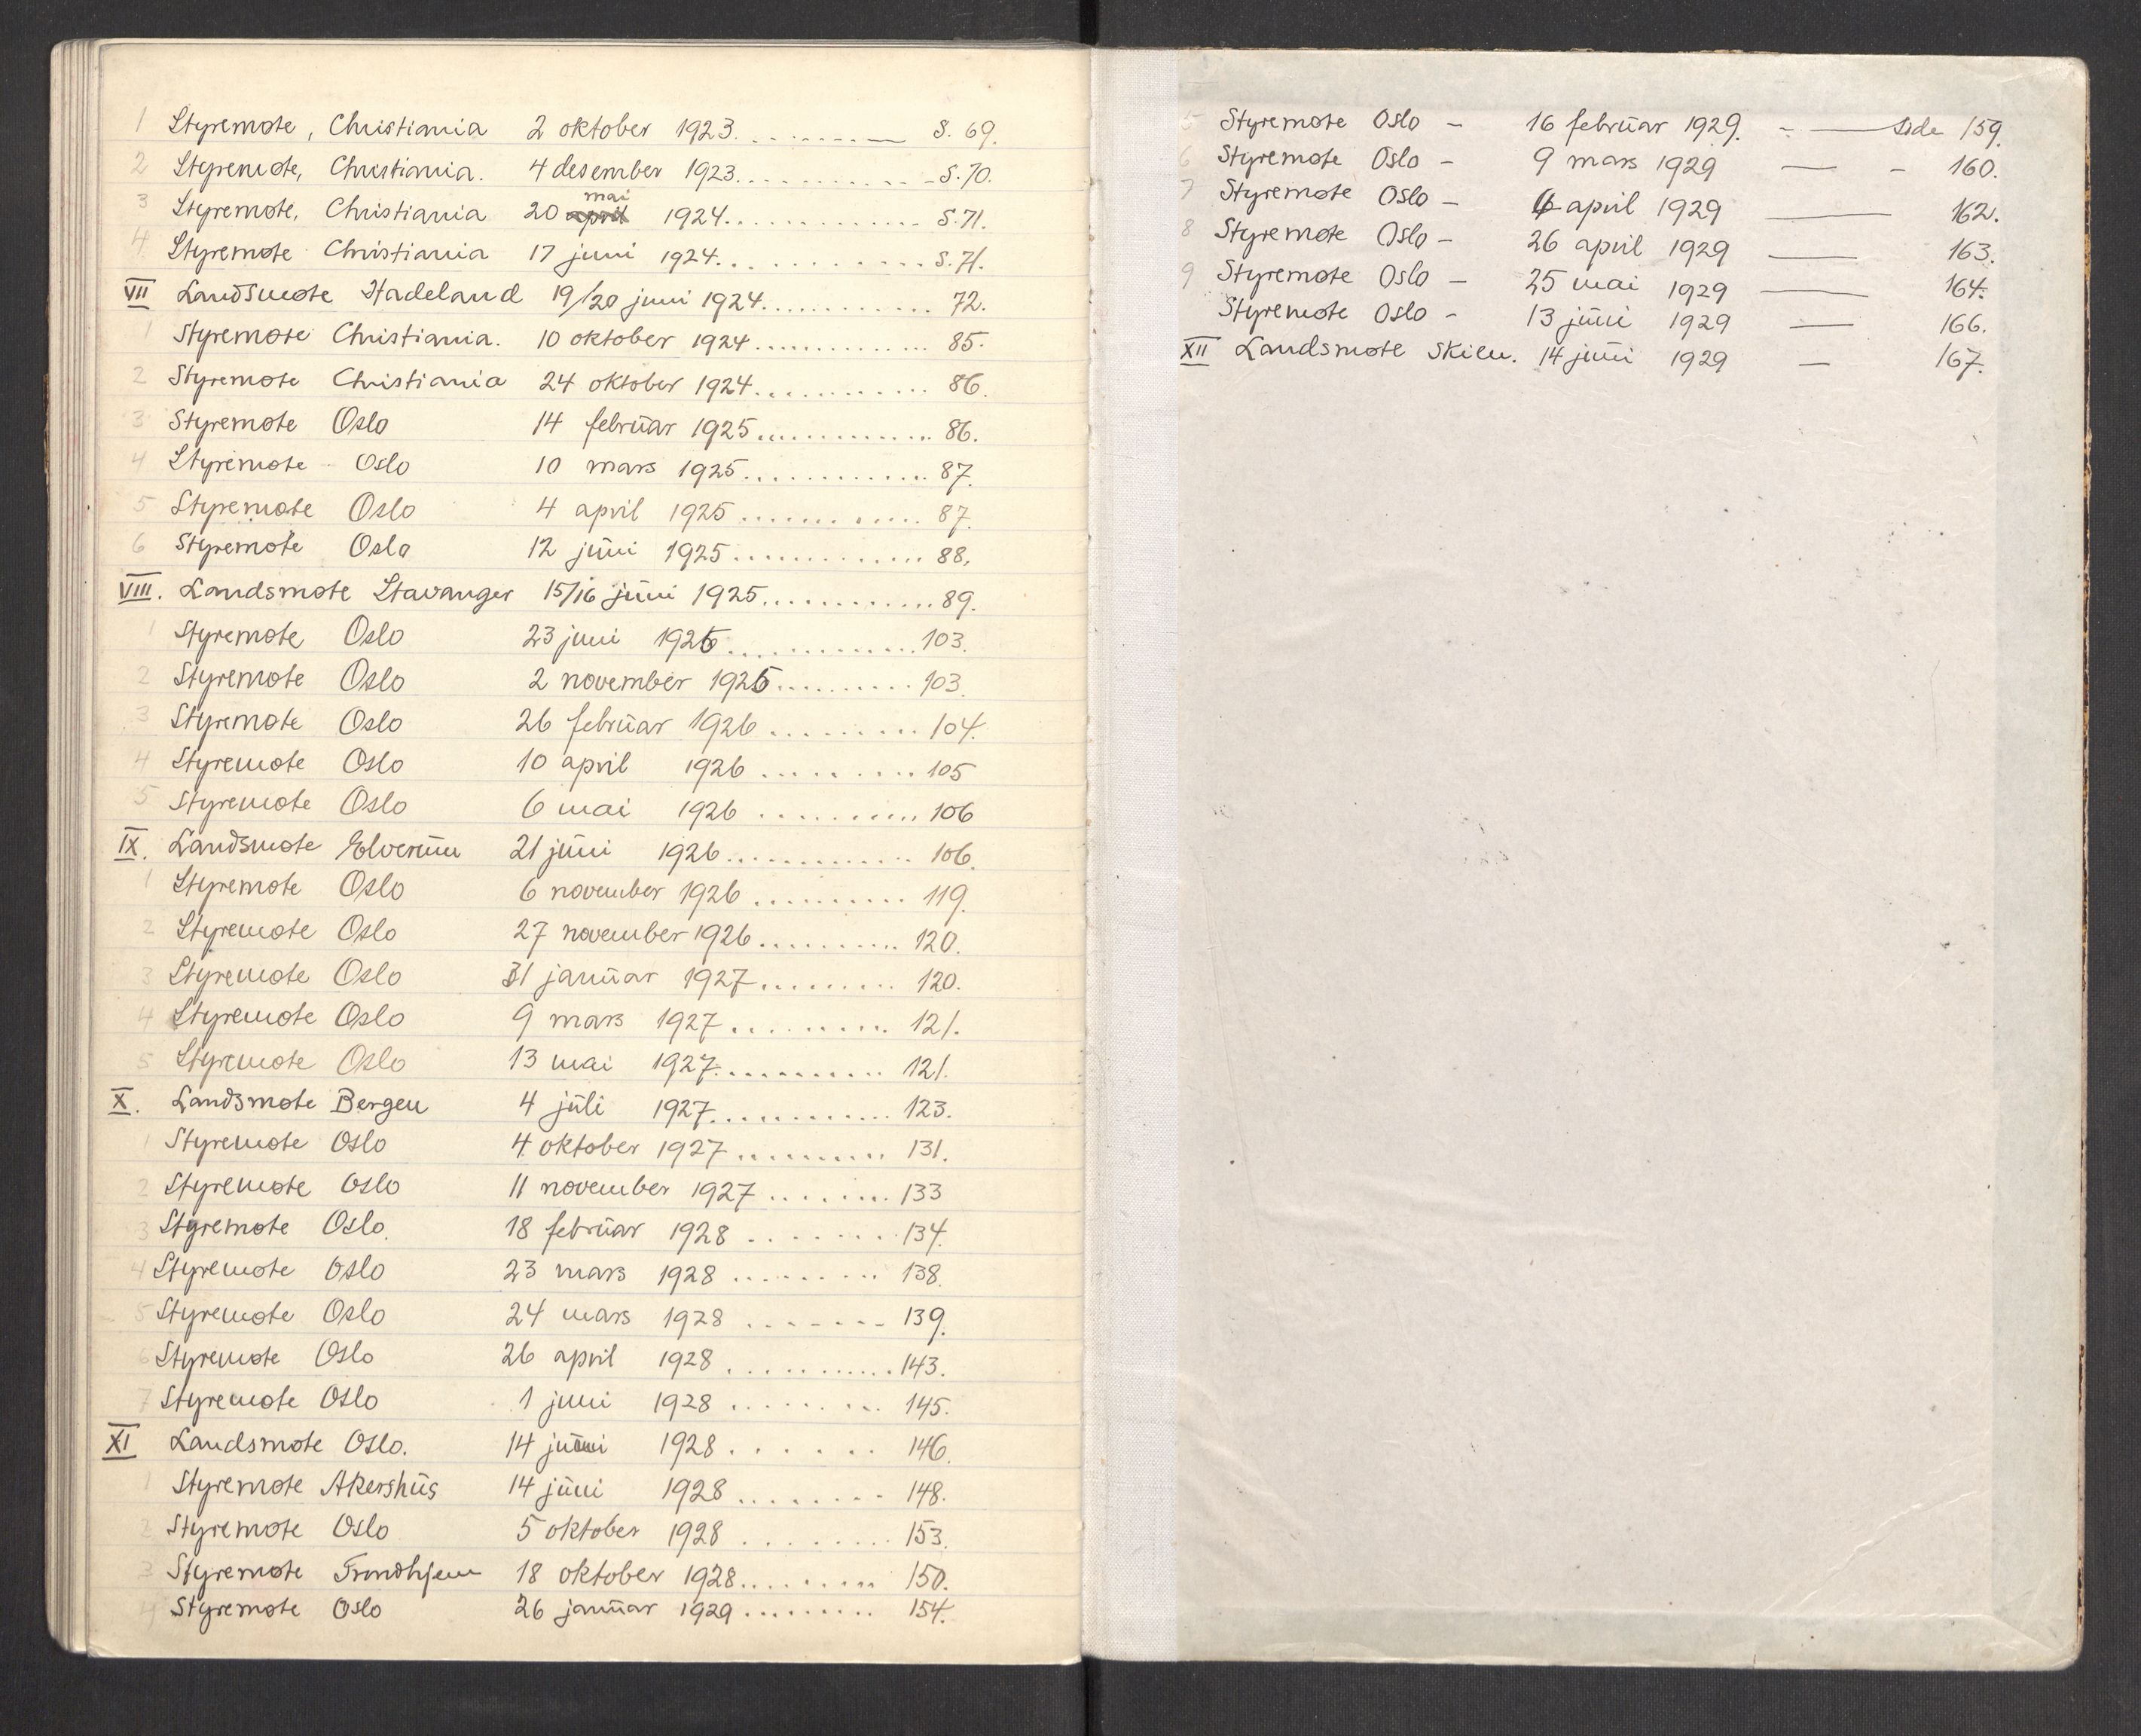 1 Styremøte, Christiania 2 oktober 1923. ........ S. 69.
2 Styremøte, Christiania. 4 desember 1923 ........ S. 70.
3 Styremøte, Christiania 20 april mai 1924 ........ S. 71.
4 Styremøte Christiania 17 juni 1924 ........ S. 71.
VII Landsmøte Hadeland 19/20 juni 1924 ........ 72.
1 Styremøte Christiania. 10 oktober 1924 ........ 85.
2 Styremøte Christiania 24 oktober 1924 ........ 86.
3 Styremøte Oslo 14 februar 1925 ........ 86.
4 Styremøte Oslo 10 mars 1925 ........ 87.
5 Styremøte Oslo 4 april 1925 ........ 87.
6 Styremøte Oslo 12 juni 1925 ........ 88.
VIII. Landsmøte Stavanger 15/16 juni 1925 ........ 89.
1 Styremøte Oslo 23 juni 1925 ........ 103.
2 Styremøte Oslo 2 november 1925 ........ 103.
3 Styremøte Oslo 26 februar 1926 ........ 104.
4 Styremøte Oslo 10 april 1926 ........ 105
5 Styremøte Oslo 6 mai 1926 ........ 106
IX. Landsmøte Elverum 21 juni 1926 ........ 106.
1 Styremøte Oslo 6 november 1926 ........ 119.
2 Styremøte Oslo 27 november 1926 ........ 120.
3 Styremøte Oslo 31 januar 1927 ........ 120.
4 Styremøte Oslo 9 mars 1927 ........ 121.
5 Styremøte Oslo 13 mai 1927 ........ 121.
X. Landsmøte Bergen 4 juli 1927 ........ 123.
1 Styremøte Oslo 4 oktober 1927 ........ 131.
2 Styremøte Oslo 11 november 1927 ........ 133
3 Styremøte Oslo. 18 februar 1928 ........ 134.
4 Styremøte Oslo 23 mars 1928 ........ 138.
5 Styremøte Oslo 24 mars 1928 ........ 139.
6 Styremøte Oslo 26 april 1928 ........ 143.
7 Styremøte Oslo 1 juni 1928 ........ 145.
XI Landsmøte Oslo. 14 juni 1928 ........ 146.
1 Styremøte Akershus 14 juni 1928 ........ 148.
2 Styremøte Oslo 5 oktober 1928 ........ 153.
3 Styremøte Trondhjem 18 oktober 1928 ........ 150.
4 Styremøte Oslo 26 januar 1929 ........ 154.
5 Styremøte Oslo - 16 februar 1929. - — Side 159.
6 Styremøte Oslo - 9 mars 1929 — - 160.
7 Styremøte Oslo - 6 april 1929 — 162.
8 Styremøte Oslo - 26 april 1929 — 163.
9 Styremøte Oslo - 25 mai 1929 — 164.
Styremøte Oslo - 13 juni 1929 — 166.
XII Landsmøte Skien. 14 juni 1929 — 167.